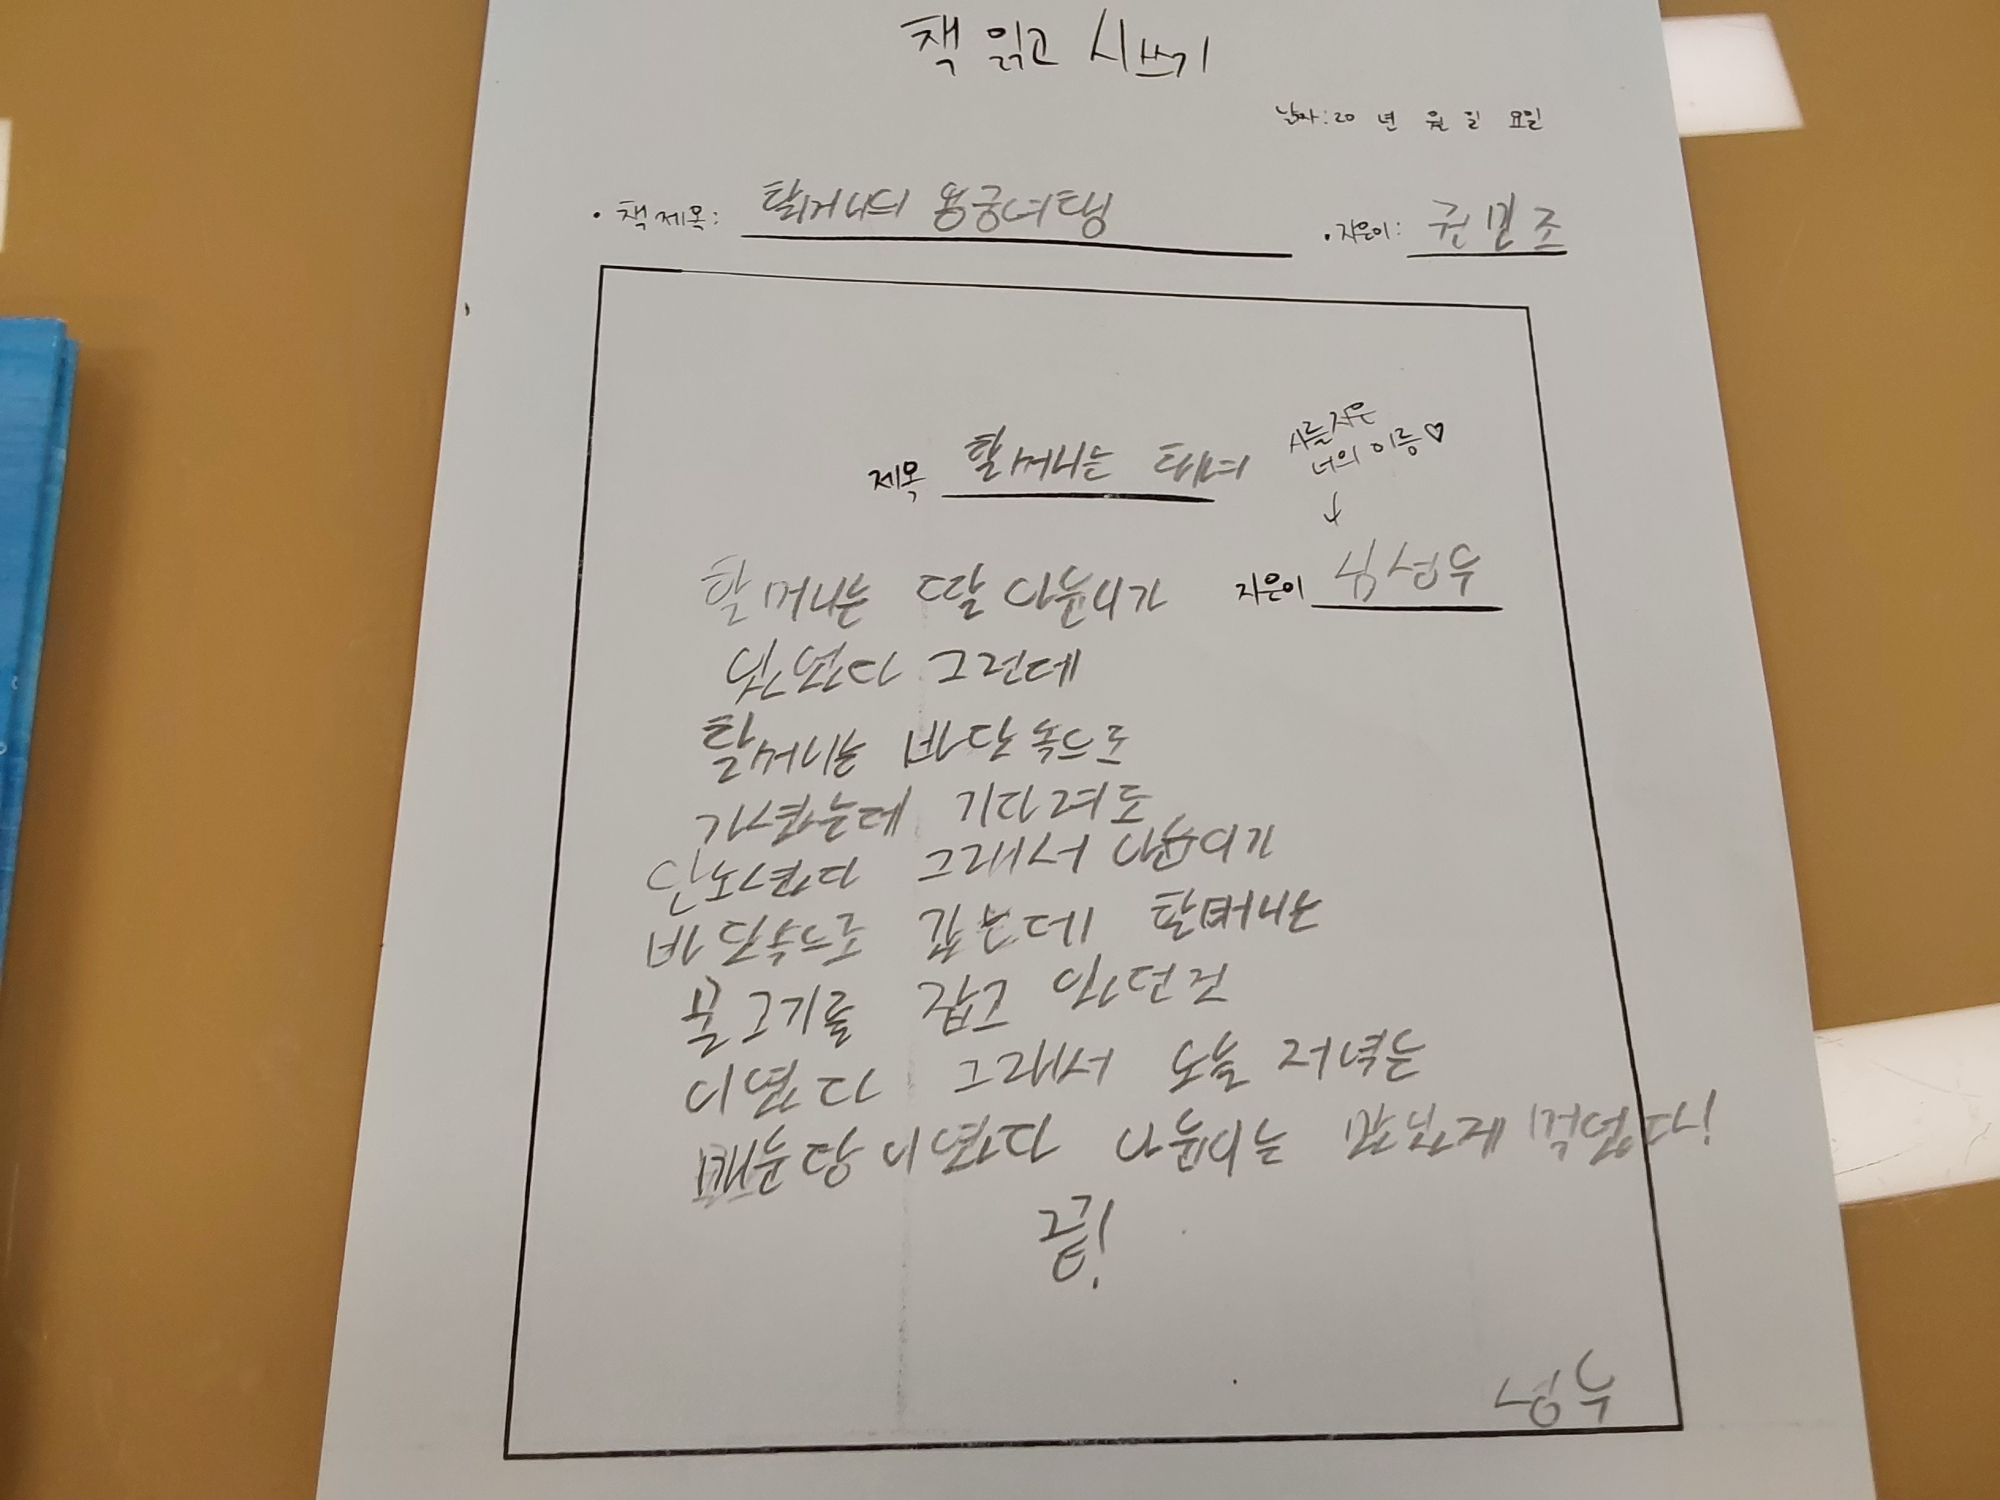 책 읽고 시쓰기
날짜:20 년 월 일 요일
• 책 제목: 할머니의 용궁여행
• 지은이: 권민조
시를 지은
너의 이름♡
↓
제목 할머니는 해녀
지은이 심성우
할머니는 딸 나윤이가
있었다 그런데
할머니는 바닷속으로
가셨는데 기다려도
안오셨다 그래서 나윤이가
바닷속으로 갔는데 할머니는
물고기를 잡고
이였다 그래서 오늘 저녁은
이였다 나윤이는 먹었다!
끝!
성우